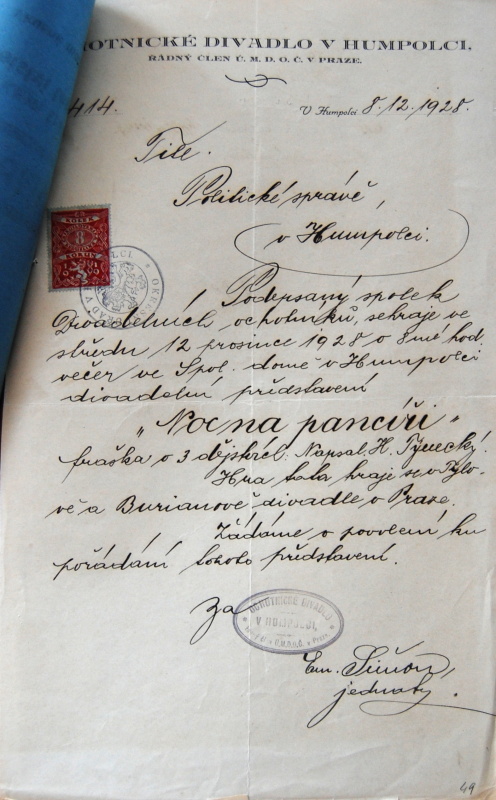 OTNICKÉ DIVADLO V HUMPOLCI,
ŘÁDNÝ ČLEN Ú. M. D. O. Č. V PRAZE.
414. V Humpolci 8.12.1928.
Politické správě,
v Humpolci.
KOLEK
8
KORUN
Podepsaný spolek
Divadelních ochotníků, sehraje ve
středu 12 prosince 1928 o 8mé hod
večer ve Spol. domě v Humpolci
divadelní představení
"Noc na pancíři"
fraška o 3 dějstvích. Napsal H.
Hra tato hraje se v Tylo-
vě a Burianově divadle v Praze.
Žádáme o povolení ku
pořádání tohoto představení.
Za
OCHOTNICKÉ DIVADLO
V HUMPOLCI,
Em. Šimon,
jednatel.
49